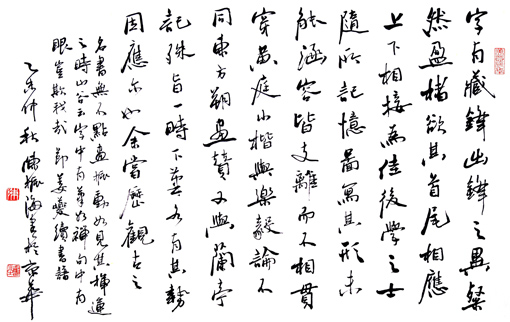 字有藏鋒出鋒之異粲
然盈楮欲其首尾相應
上下相接為佳後學之士
隨所記憶圖寫其形未
能涵容皆支離而不相貫
穿黃庭小楷與樂毅論不
同東方朔畫贊又與蘭亭
記殊旨一時下筆各有其勢
固應爾也余嘗歷觀古之
名書無不點畫振動如見其揮運
之時山谷云字中有筆如禪句中有
眼豈欺我哉 節姜夔續書譜
乙酉仲秋陳振海書於京華